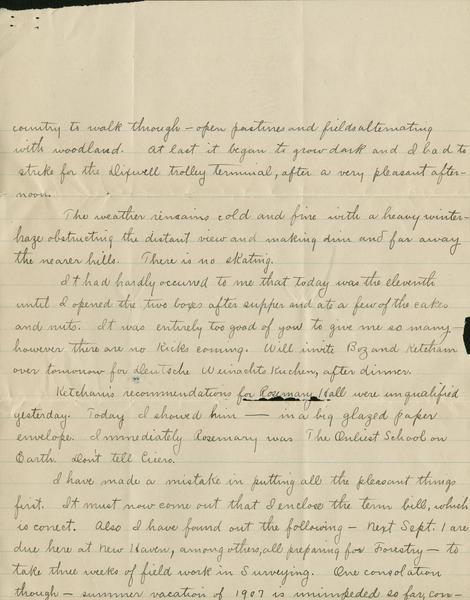 country to walk through — open pastures and fields alternating
with woodland. At last it began to grow dark and I had to
strike for the Dixwell trolley terminal, after a very pleasant after-
noon.
The weather remains cold and fine with a heavy winter-
haze obstructing the distant view and making dim and far away
the nearer hills. There is no skating.
It had hardly occured to me that today was the eleventh
until I opened the two boxes after supper and ate a few of the cakes
and nuts. It was entirely too good of you to give me so many —
however there are no kicks coming. Will invite Boz and Ketcham
over tomorrow for Deutsche Weinachts Kuchen, after dinner.
Ketcham's recommendations for Rosemary Hall were unqualified
yesterday. Today I showed him — in a big glazed paper
envelope. Immediately Rosemary was The Onliest School on
Earth. Don't tell Cicero.
I have made a mistake in putting all the pleasant things
first. It must now come out that I enclose the term bill, which
is correct. Also I have found out the following — Next Sept. 1 are
due here at New Haven, among others, all preparing for Forestry — to
take three weeks of field work in Surveying. One consolation
though — summer vacation of 1907 is unimpeded so far, con-